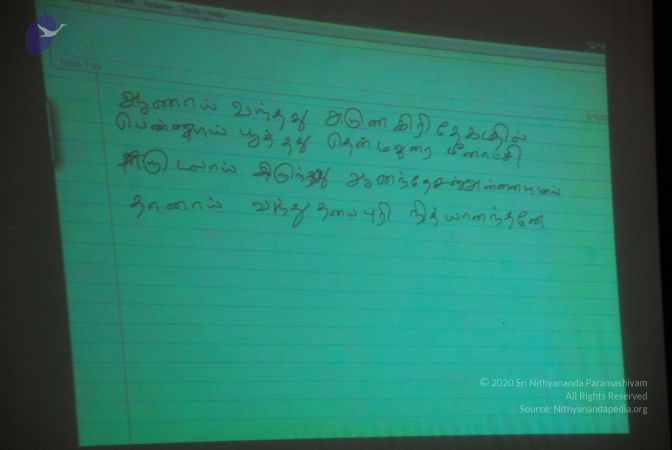 Actions Tools Help
Note Title
ஆணாய் வந்தது அருணகிரி தேகமதில்
பெண்ணாய் பூத்தது தென்மதுரை மீனாட்சி
ஆனந்தேசன்
தானாய் வந்து தயைபுரி நித்யானந்தனே.
© 2020 Sri Nithyananda Paramashivam
All Rights Reserved
Source: Nithyanandapedia.org